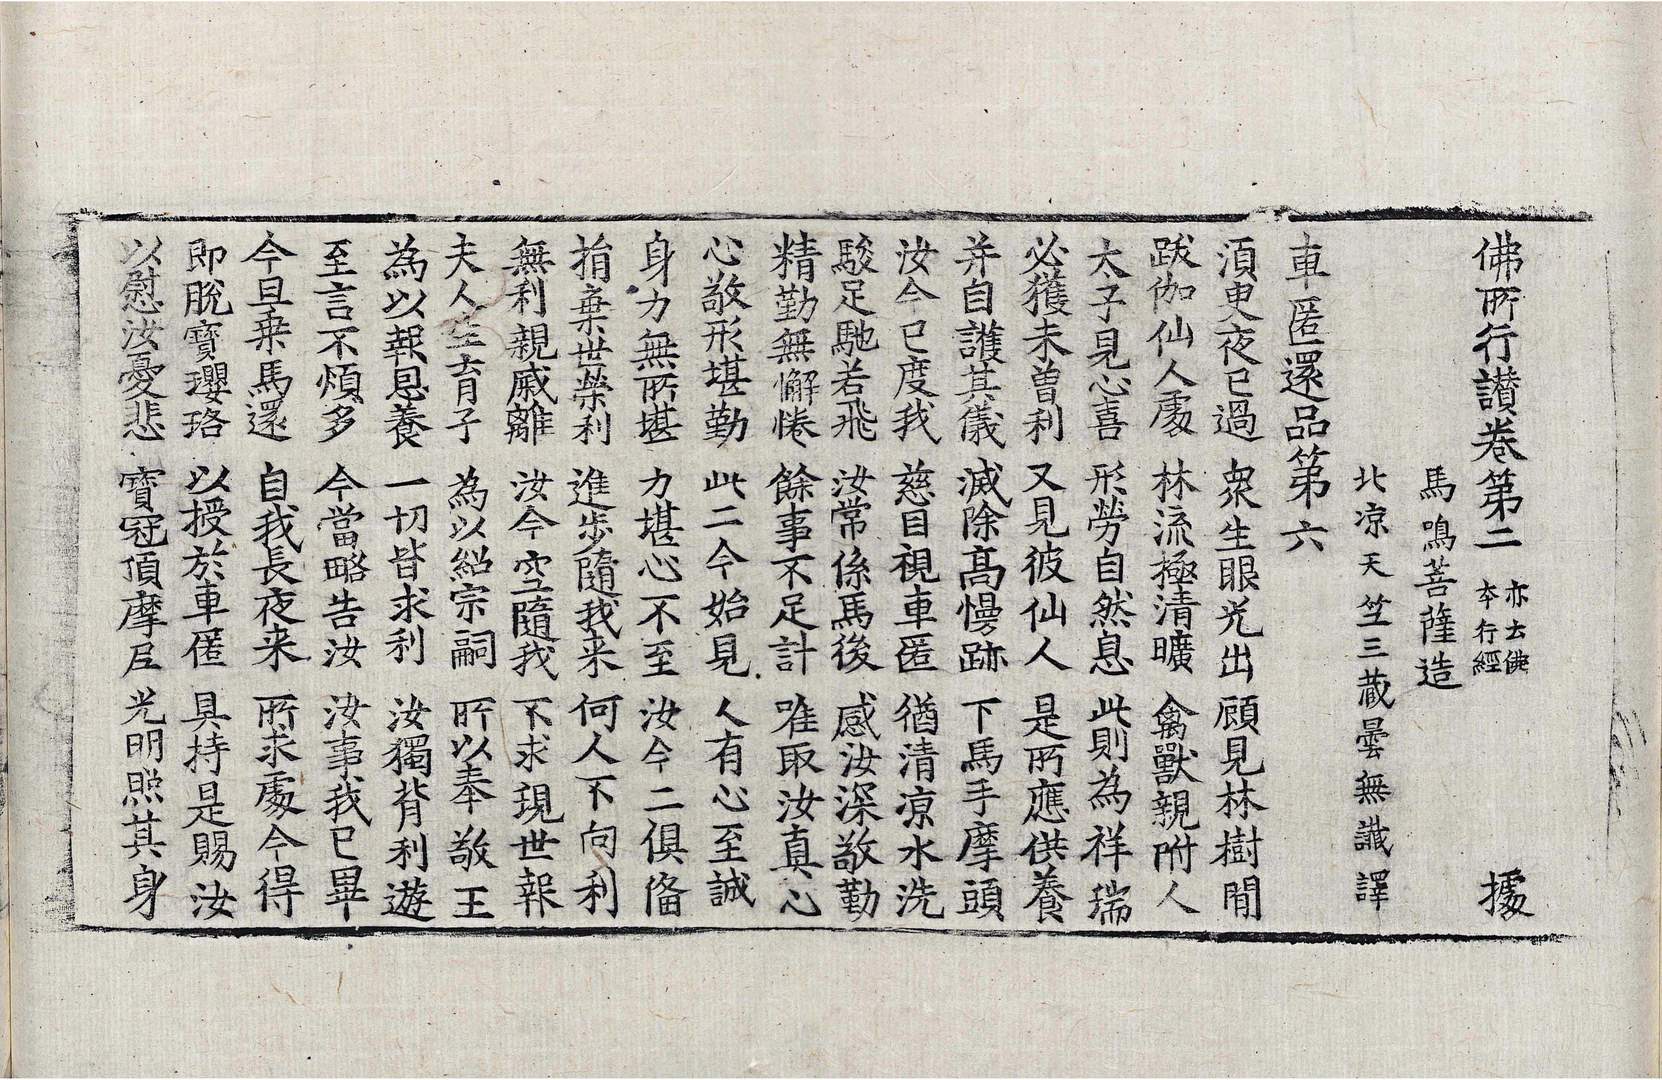 佛所行讃卷第二 亦云佛本行經 據
馬鳴菩薩造
北涼天竺三藏曇無讖譯
車匿還品第六
湏臾夜已過 衆生眼光出 顧見林樹間
跋伽仙人處 林流極清曠 禽獸親附人
太子見心喜 形勞自然息 此則為祥瑞
必獲未曽利 又見彼仙人 是所應供養
并自護其儀 滅除髙慢跡 下馬手摩頭
汝今已度我 慈目視車匿 猶清涼水洗
駿足馳若飛 汝常係馬後 感汝深敬勤
精勤無懈惓 餘事不足計 唯取汝真心
心敬形堪勤 此二今始見 人有心至誠
身力無所堪 力堪心不至 汝今二俱俻
捐棄世榮利 進步隨我来 何人不向利
無利親戚離 汝今空隨我 不求現世報
夫人生育子 為以紹宗嗣 所以奉敬王
為以報恩養 一切皆求利 汝獨背利遊
至言不煩多 今當略告汝 汝事我已畢
今且乗馬還 自我長夜来 所求處今得
即脫寳瓔珞 以授於車匿 具持是賜汝
以慰汝憂悲 寳冠頂摩尼 光明照其身